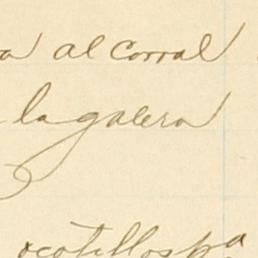 a al corral
la galera
ocotillos pa